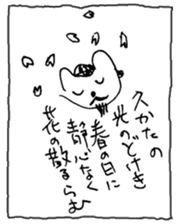 久かたの
光のどけき
春の日に
静心なく
花の散るらむ